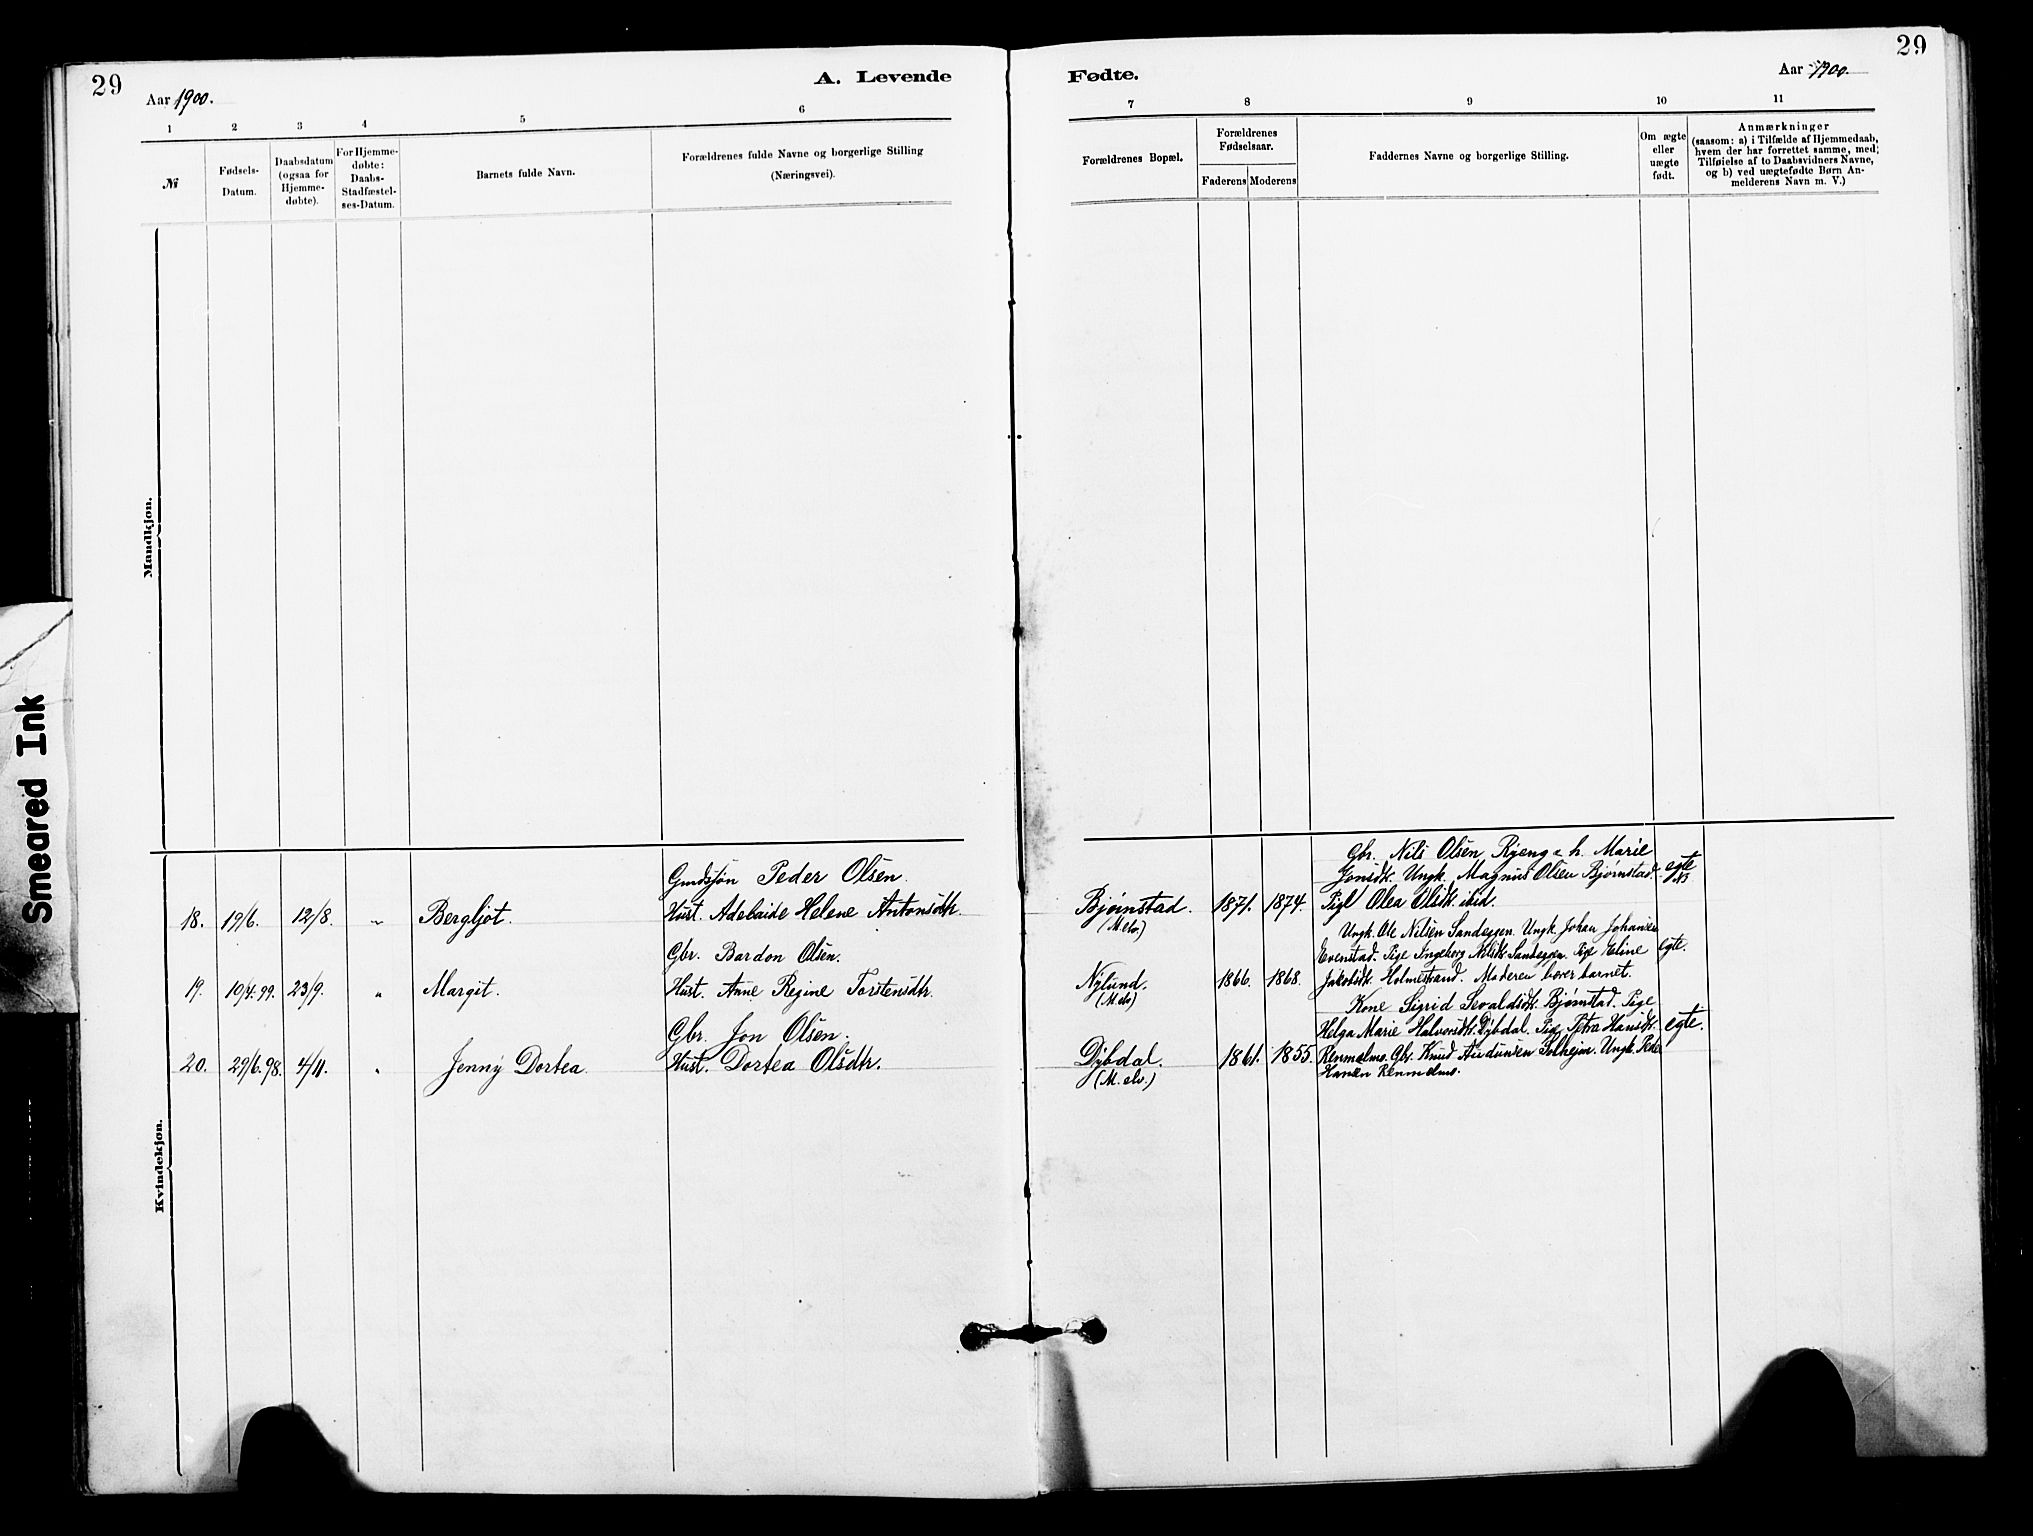 29
A. Levende
Fødte.
29
Aar 1900.
Aar 1900.
1 2 3 4 5 6
7 8 9 10 11
№
Fødsels-
Datum.
Daabsdatum
(ogsaa for
Hjemme-
døbte).
For Hjemme-
døbte:
Daabs-
Stadfæstel-
ses-Datum.
Barnets fulde Navn.
Forældrenes fulde Navne og borgerlige Stilling
(Næringsvei).
Forældrenes Bopæl.
Forældrenes
Fødselsaar.
Faderens Moderens
Faddernes Navne og borgerlige Stilling.
Om ægte
eller
uægte
født.
Anmærkninger
(saasom: a) i Tilfælde af Hjemmedaab,
hvem der har forrettet samme, med
Tilføielse af to Daabsvidners Navne,
og b) ved uægtefødte Børn An-
melderens Navn m. V.)
Mandkjøn.
Smeared Ink
Kvindekjøn.
Gmdssøn Peder Olsen.
18. 19/6. 12/8. " Bergljot. Hust. Adelaide Helene Antonsdtr.
Bjørnstad. 1871. 1874.
(M elv.)
Gbr. Nils Olsen Ryeng & h. Marie
Jonsdtr. Ungk. Magnus Olsen Bjørnstad.
Pige Olea Olsdtr. ibid.
egte
Gbr. Bardon Olsen.
19. 10/4.99. 23/9. " Margit. Hust. Anne Regine Torstensdtr.
Nylund. 1866. 1868.
(M elv)
Ungk. Ole Nilsen Sandeggen. Ungk. Johan Johansen
Evenstad. Pige Ingeborg Nilsdtr. Sandeggen. Pige Eline
Jakobsdtr. Holmestrand. Moderen bærer barnet.
egte.
Gbr. Jon Olsen.
20. 29/6.98. 4/11. " Jenny Dortea. Hust. Dortea Olsdtr.
Dybdal. 1861. 1855.
(M. elv.)
Kone Sigrid Sevaldsdtr. Bjørnstad. Pige
Helga Marie Halvorsdtr. Dybdal. Pige Petra Hansdtr.
Renmælmo. Gbr. Knud Audunsen Solheim. Ungk. Peder
Hansen Renmælmo.
egte.